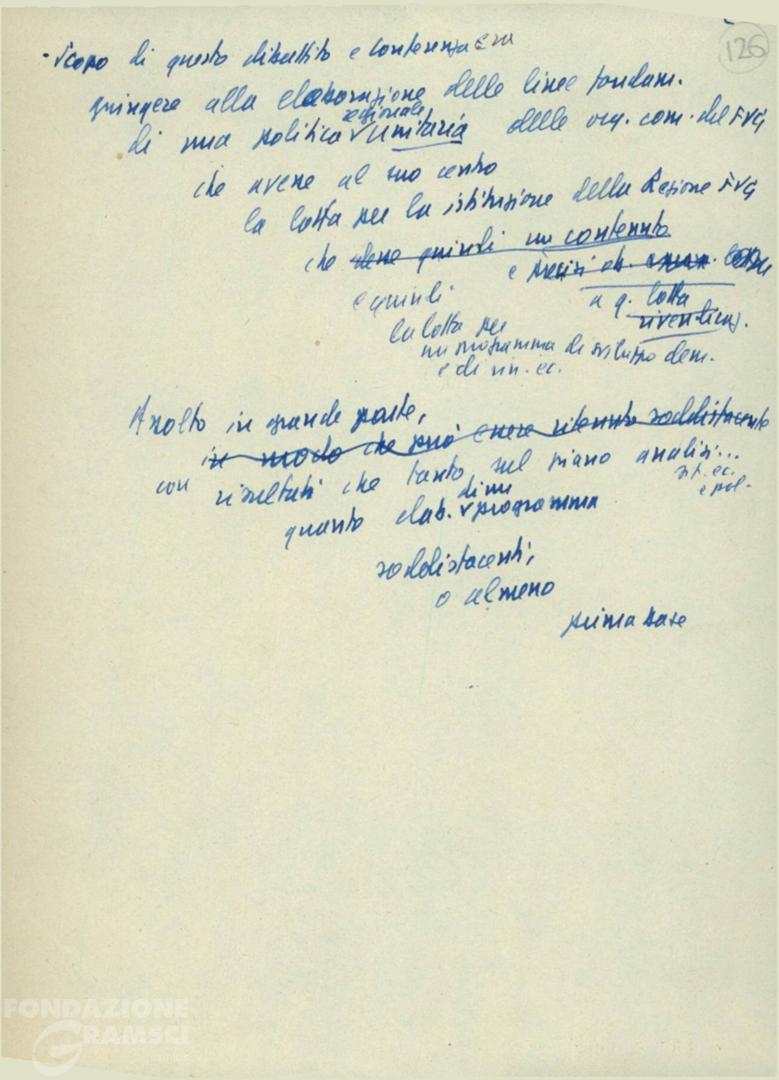 126
- Scopo di questo dibattito e conferenza era
giungere alla elaborazione delle linee fondam.
di una politica regionale unitaria delle org. com. del FVG
che avesse al suo centro
la lotta per la istituzione della Regione FVG
che deve quindi un contenuto
e precisi ob.
e quindi a q. lotta
rivendicaz.
la lotta per
un programma di sviluppo dem.
e di rin. ec.
Assolto in grande parte,
in modo che può essere ritenuto soddisfacente
con risultati che tanto sul piano analisi...
sit. ec.
e pol.
quanto elab. di un programma
soddisfacenti,
o almeno
prima base
FONDAZIONE
GRAMSCI